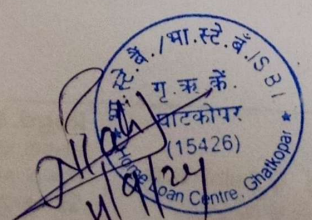 स्टे.बैं./भा.स्टे.बैं./SBI
गृ.ऋ.कें.
घाटकोपर
(15426)
Home Loan Centre, Ghatkopar
4/9/24